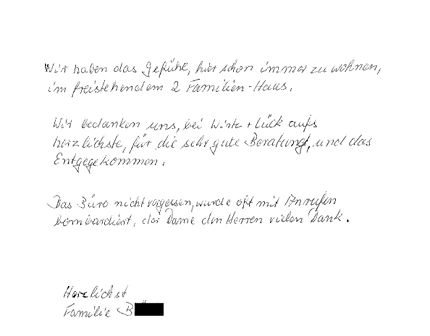 Wir haben das Gefühl, hier schon immer zu wohnen,
im freistehendem 2 Familien-Haus.
Wir bedanken uns, bei Wirtz + Lück aufs
herzlichste, für die sehr gute Beratung, und das
Entgegekommen.
Das Büro nicht vergessen, wurde oft mit Anrufen
bombardiert, der Dame den Herren vielen Dank.
Herzlichst
Familie